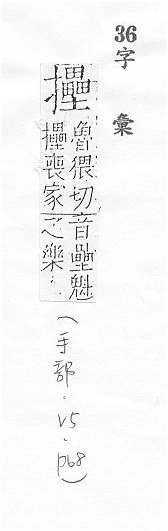 36
字彙
魯猥切音壘魁
喪家之樂…
(手部.V5.p68)